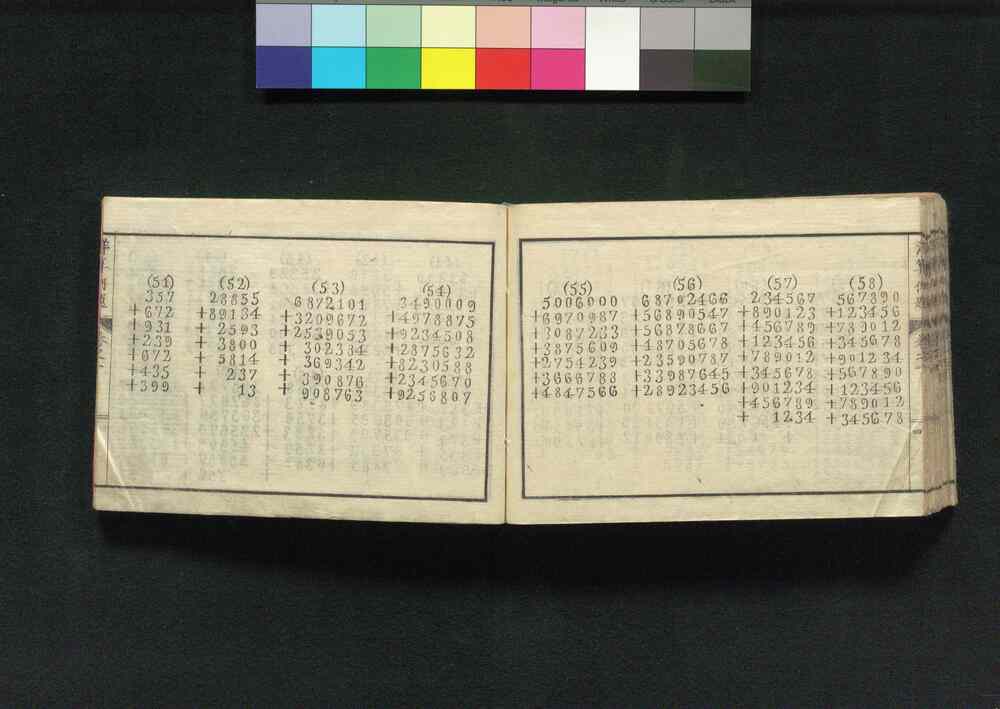 (51)
357
+672
+931
+239
+672
+435
+399
(52)
28855
+89134
+2593
+3800
+5814
+237
+13
(53)
6872101
+3209672
+2539053
+302334
+369342
+390876
+908763
(54)
3490009
+4978875
+9234508
+2875632
+8230588
+2345670
+9256807
(55)
5006000
+6970987
+3087233
+3875609
+2754239
+3666788
+4847566
(56)
68702466
+56890547
+56878667
+48705678
+23590787
+33987645
+28923456
(57)
234567
+890123
+456789
+123456
+789012
+345678
+901234
+456789
+1234
(58)
567890
+123456
+789012
+345678
+901234
+567890
+123456
+789012
+345678